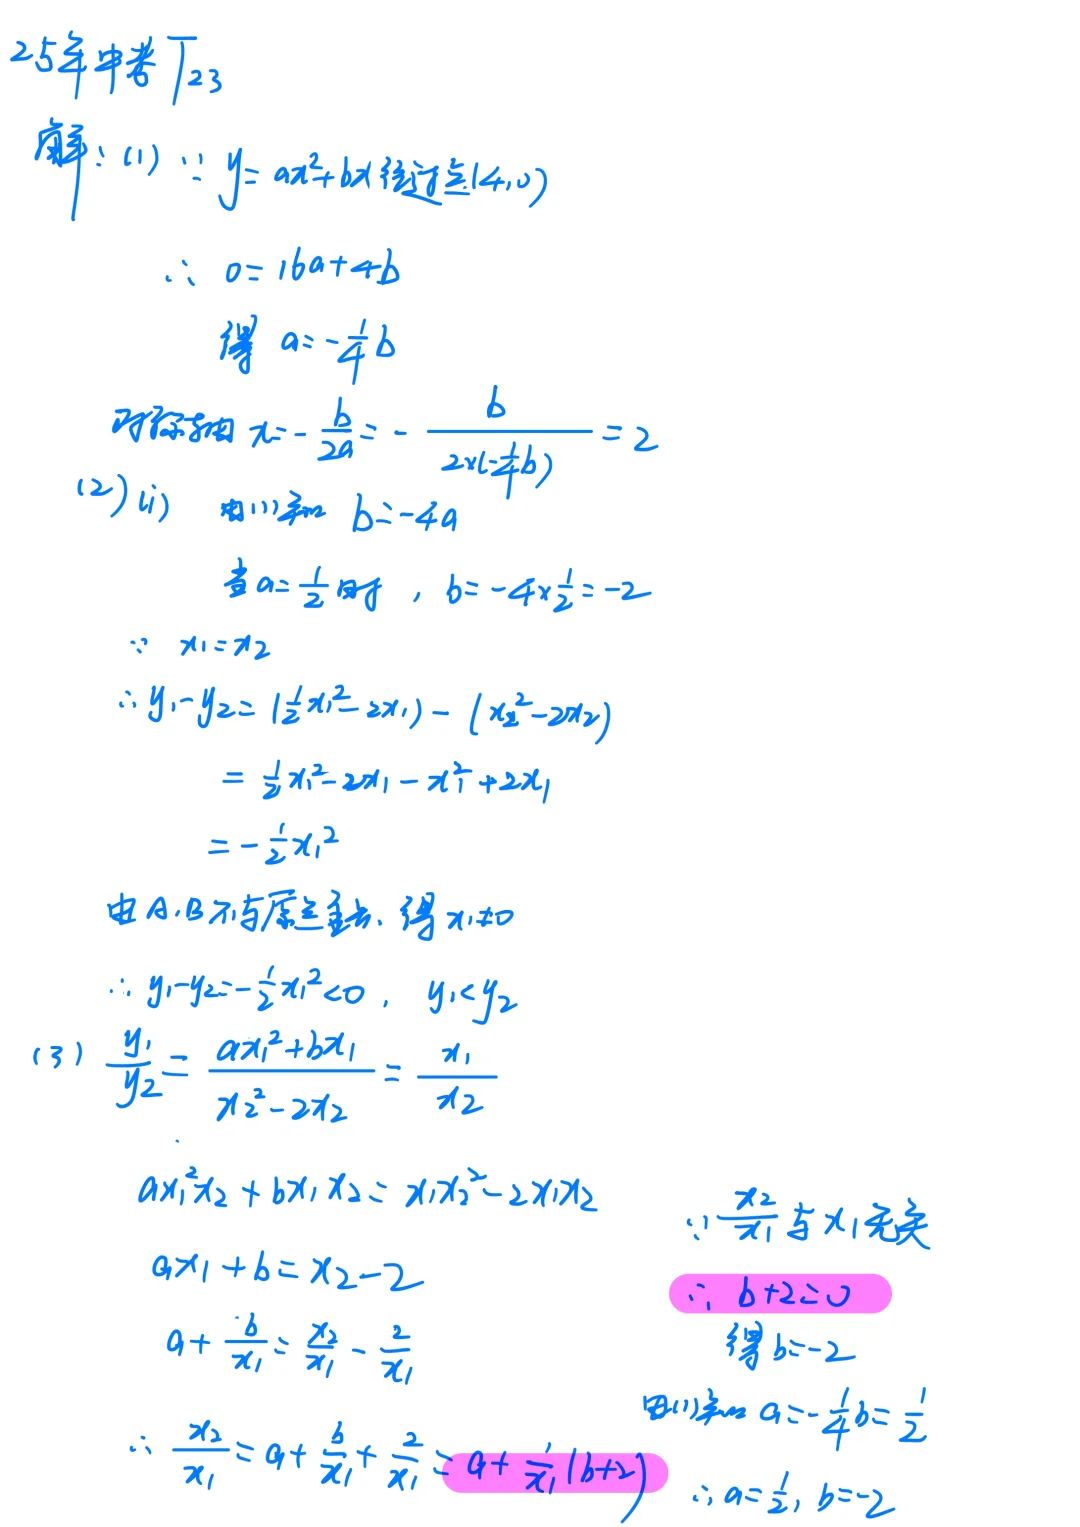 25年中考T23
解：(1) ∵ y=ax²+bx经过点(4,0)
∴ 0=16a+4b
得 a=-1/4 b
对称轴 x=-b/2a=-b/(2×(-1/4 b))=2
(2)(i) 由(1)知 b=-4a
当a=1/2时，b=-4×1/2=-2
∵ x₁=x₂
∴y₁-y₂=(1/2x₁²-2x₁)-(x₂²-2x₂)
=1/2x₁²-2x₁-x₁²+2x₁
=-1/2x₁²
由A、B不与原点重合、得x₁≠0
∴y₁-y₂=-1/2x₁²<0，y₁<y₂
(3) y₁/y₂=(ax₁²+bx₁)/(x₂²-2x₂)=x₁/x₂
ax₁²x₂+bx₁x₂=x₁x₂²-2x₁x₂
ax₁+b=x₂-2
a+b/x₁=x₂/x₁-2/x₁
∴ x₂/x₁=a+b/x₁+2/x₁=a+1/x₁(b+2)
∵x₂/x₁与x₁无关
∴ b+2=0
得b=-2
由(1)知 a=-1/4b=1/2
∴a=1/2, b=-2